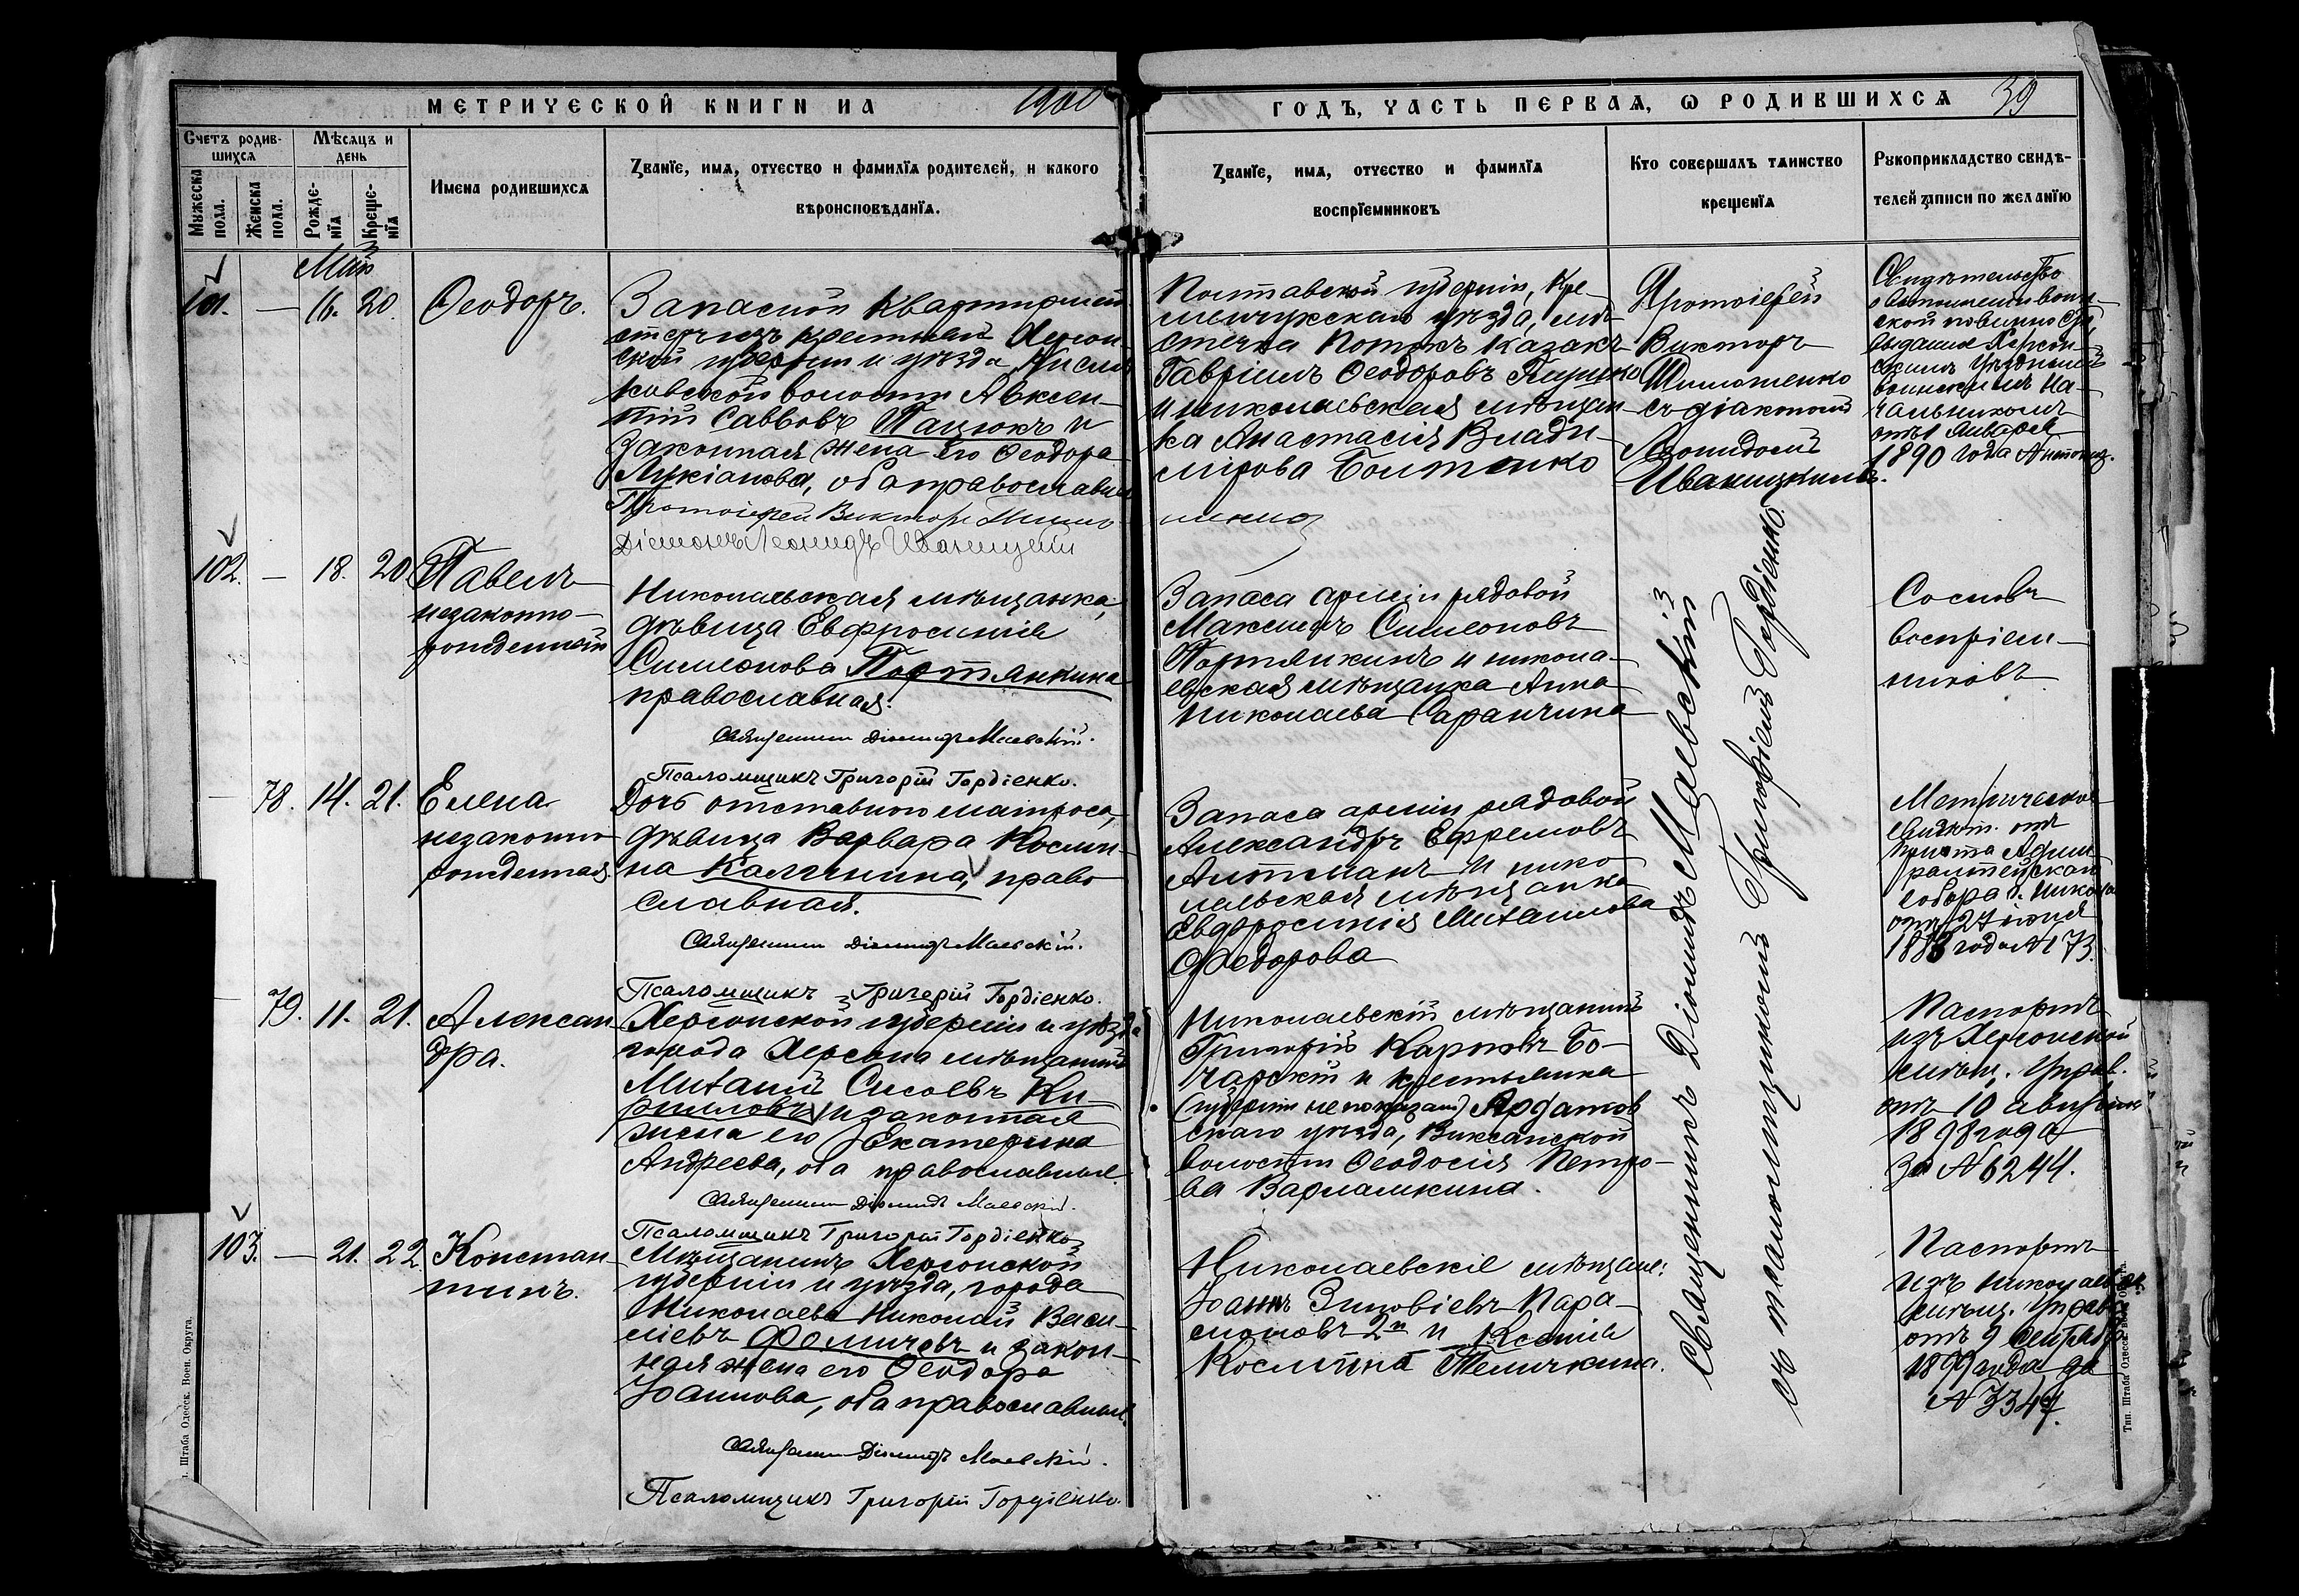 МЕТРИЧЕСКОЙ КНИГИ НА 1900
ГОДЪ, ЧАСТЬ ПЕРВАЯ, Ѡ РОДИВШИХСЯ 39
Счетъ родив-
шихся
Мѣсяцъ и
день
Мужеска
пола.
Женска
пола.
Рожде-
нїя
Креще-
нїя
Имена родившихся
Званїе, имя, отчество и фамилїя родителей, и какого
вѣроисповѣданїя.
Званїе, имя, отчество и фамилїя
воспрїемниковъ
Кто совершалъ таинство
крещенїя
Рукоприкладство свидѣ-
телей записи по желанїю
Май
101. — 16. 20.
Ѳеодоръ.
Запасной Квартирмей
стеръ изъ крестьянъ Херсон-
ской губерніи и уѣзда, Кисля
ковской волости Авксен-
тій Саввовъ Пацюкъ и
законная жена его Ѳеодора
Лукіанова, оба православные
Протоіерей Викторъ
Діаконъ Леонидъ Иваницкій
Полтавской губерніи, Кре-
менчугскаго уѣзда, мѣ-
стечка Потокъ казакъ
Гавріилъ Ѳеодоровъ
и николаевская мѣщан-
ка Анастасія Влади-
мірова Болтенко
Протоіерей
Викторъ
Шимошенко
съ діакономъ
Леонидомъ
Иваницкимъ.
Свидѣтельство
о выполненіи воин-
ской повинности
выданное Херсон-
скимъ Уѣзднымъ
воинскимъ На-
чальникомъ
отъ 1 Января
1890 года
102. — 18. 20.
Павелъ
незаконно-
рожденный
Николаевская мѣщанка,
дѣвица Евфросинія
Симеонова Портянкина
православная.
Священникъ Діомидъ Маевскій.
Псаломщикъ Григорій Гордіенко.
Запаса арміи рядовой
Максимъ Симеоновъ
Портянкинъ и никола-
евская мѣщанка Анна
Николаева Саранчина
Со словъ
воспріем-
никовъ
— 78. 14. 21.
Елена
незаконно
рожденная.
Дочь отставного матроса,
дѣвица Варвара Косми-
на Калинина, право
славная.
Священникъ Діомидъ Маевскій.
Псаломщикъ Григорій Гордіенко.
Запаса арміи рядовой
Александръ Ефремовъ
Антманъ и нико
лаевская мѣщанка
Евфросинія Михаилова
Федорова
Метрическое
свидѣт. отъ
причта Адми
ралтейскаго
собора г. Никола
отъ 27 іюня
1883 года № 173.
— 79. 11. 21.
Алексан
дра.
Херсонской губерніи и уѣзда
города Херсона мѣщанинъ
Михаилъ Сисоевъ Ки-
рилловъ и законная
жена его Екатерина
Андреева, оба православные.
Священникъ Діомидъ Маевскій.
Псаломщикъ Григорій Гордіенко.
Николаевскій мѣщанинъ
Григорій Карповъ Бо-
чарскій и крестьянка
(губерніи не показано) Ардатов
скаго уѣзда, Виксанской
волости Ѳеодосія Петро-
ва Варламкина.
Паспортъ
изъ Херсонской
мѣщ. Управ.
отъ 10 августа
1898 года
за № 6244.
103. — 21. 22.
Констан-
тинъ.
Мѣщанинъ Херсонской
губерніи и уѣзда, города
Николаева Николай Васи-
ліевъ Фомичевъ и закон-
ная жена его Ѳеодора
Іоаннова, оба православные.
Священникъ Діомидъ Маевскій.
Псаломщикъ Григорій Гордіенко.
Николаевскіе мѣщане:
Іоаннъ Зиновіевъ Пара-
моновъ 2й и Ксенія
Космина Теличкина.
Паспортъ
изъ николаевск
мѣщ. Управ
отъ 9 Сентяб
1899 года за
№ 3347.
Священникъ Діомидъ Маевскій
съ псаломщикомъ Григоріемъ Гордіенко.
Штаба Одесск. Воен. Округа.
Тип. Штаба Одесск. Воен. Округа.